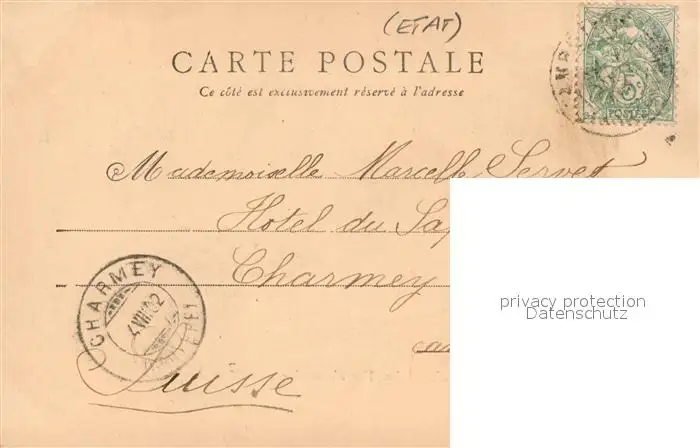 (ETAT)
CARTE POSTALE
Ce côté est exclusivement réservé à l'adresse
5c
POSTES
Mademoiselle Marcelle Servet
Hotel du Sap
Charmey
privacy protection
Datenschutz
CHARMEY
4.VIII.02
Suisse